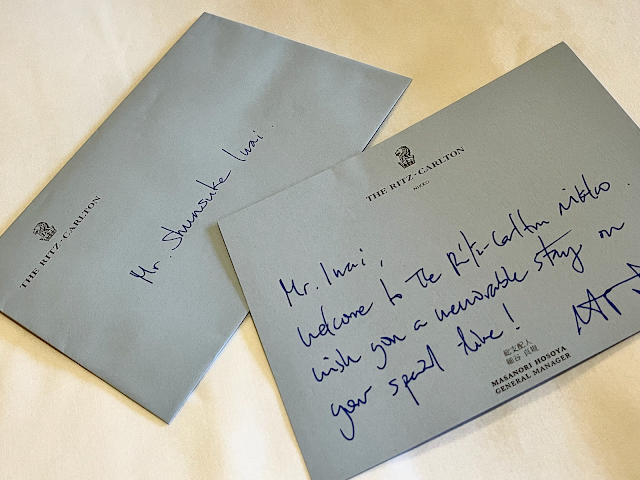 THE RITZ-CARLTON
Mr. Shunsuke Iwai.
THE RITZ-CARLTON
NIKKO
Mr. Iwai,
welcome to The Ritz-Carlton nikko.
wish you a memorable stay on
your special time!
総支配人
細谷 真規
MASANORI HOSOYA
GENERAL MANAGER